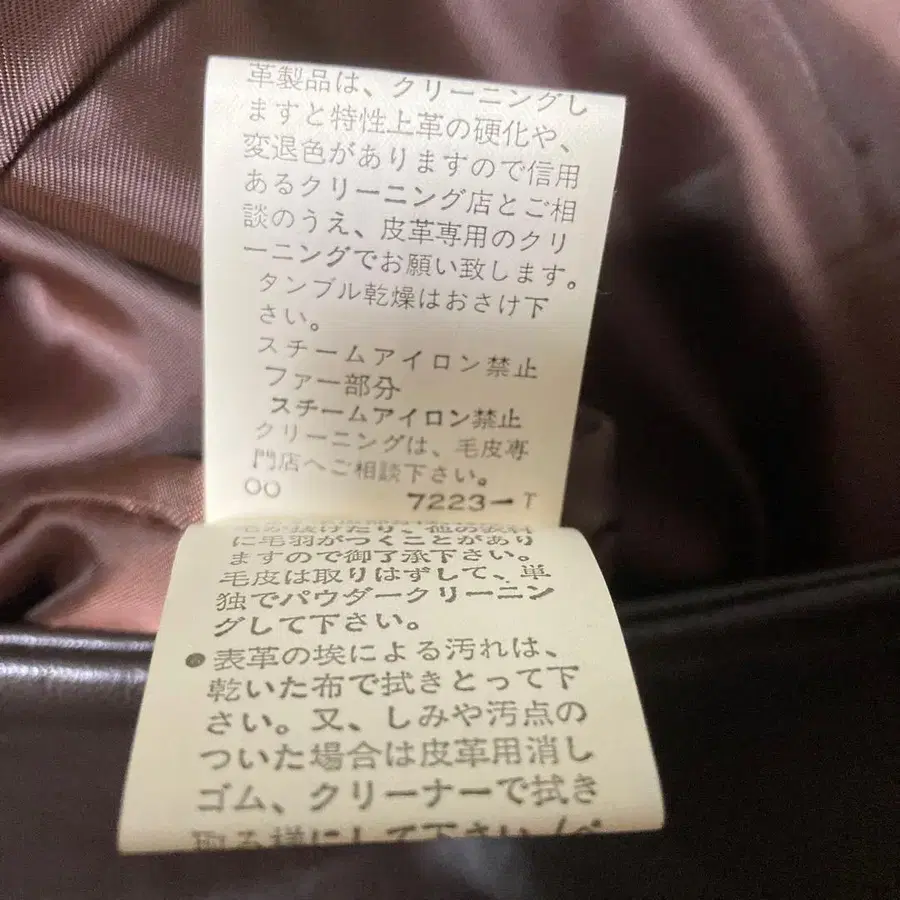 革製品は、クリーニングし
ますと特性上革の硬化や、
変退色がありますので信用
あるクリーニング店とご相
談のうえ、皮革専用のクリ
ーニングでお願い致します。
タンブル乾燥はおさけ下
さい。
スチームアイロン禁止
ファー部分
スチームアイロン禁止
クリーニングは、毛皮専
門店へご相談下さい。
OO 7223-T
毛が抜けたり、他の衣料
に毛羽がつくことがあり
ますので御了承下さい。
毛皮は取りはずして、単
独でパウダークリーニン
グして下さい。
●表革の埃による汚れは、
乾いた布で拭きとって下
さい。又、しみや汚点の
ついた場合は皮革用消し
ゴム、クリーナーで拭き
取る様にして下さい